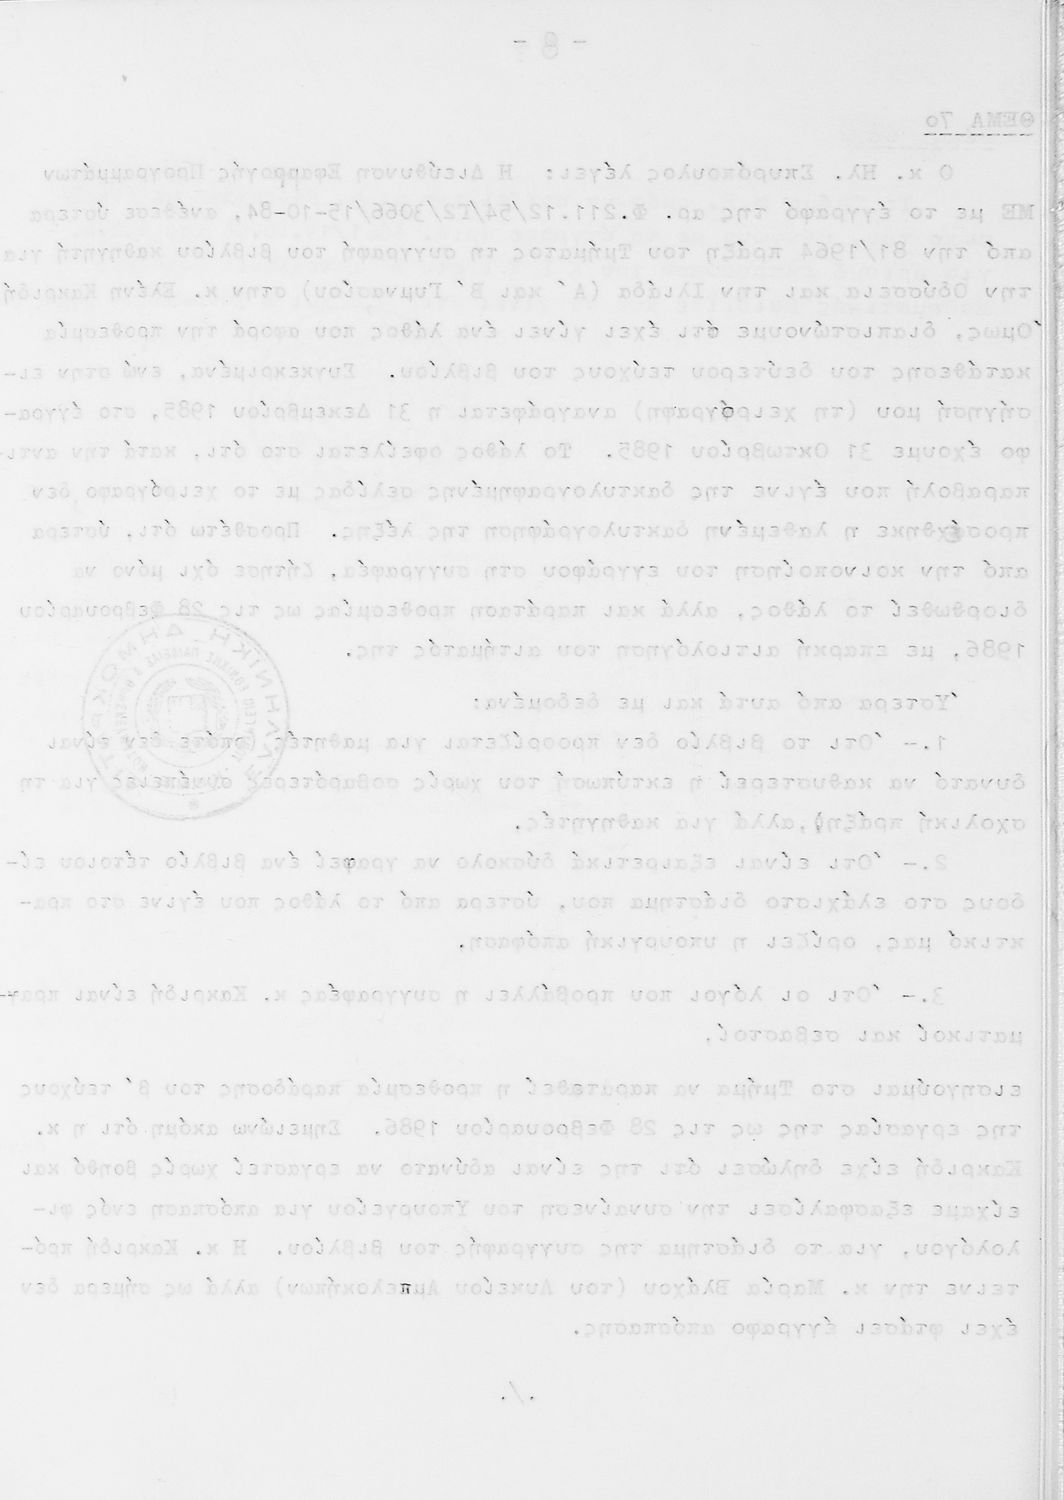 - 8 -
ΘΕΜΑ 7ο
Ο κ. Ηλ. Σπυρόπουλος λέγει: Η Διεύθυνση Εφαρμογής Προγραμμάτων
ΜΕ με το έγγραφό της αρ. Φ.211.12/54/Γ2/3066/15-10-84, ανέθεσε ύστερα
από την 81/1964 πράξη του Τμήματος τη συγγραφή του βιβλίου καθηγητή για
την Οδύσσεια και την Ιλιάδα (Α΄ και Β΄ Γυμνασίου) στην κ. Ελένη Κακριδή
Όμως, διαπιστώνουμε ότι έχει γίνει ένα λάθος που αφορά την προθεσμία
κατάθεσης του δεύτερου τεύχους του βιβλίου. Συγκεκριμένα, ενώ στην ει-
σήγησή μου (τη χειρόγραφη) αναγράφεται η 31 Δεκεμβρίου 1985, στο έγγρα-
φο έχουμε 31 Οκτωβρίου 1985. Το λάθος οφείλεται στο ότι, κατά την αντι-
παραβολή που έγινε της δακτυλογραφημένης σελίδας με το χειρόγραφο δεν
προσέχθηκε η λαθεμένη δακτυλογράφηση της λέξης. Προσθέτω ότι, ύστερα
από την κοινοποίηση του εγγράφου στη συγγραφέα, ζήτησε όχι μόνο να
διορθωθεί το λάθος, αλλά και παράταση προθεσμίας ως τις 28 Φεβρουαρίου
1986, με επαρκή αιτιολόγηση του αιτήματός της.
Ύστερα από αυτά και με δεδομένα:
1.- Ότι το βιβλίο δεν προορίζεται για μαθητές (οπότε δεν είναι
δυνατό να καθυστερεί η εκτύπωσή του χωρίς σοβαρότερες συνέπειες για τη
σχολική πράξη), αλλά για καθηγητές.
2.- Ότι είναι εξαιρετικά δύσκολο να γραφεί ένα βιβλίο τέτοιου εί-
δους στο ελάχιστο διάστημα που, ύστερα από το λάθος που έγινε στο πρα-
κτικό μας, ορίζει η υπουργική απόφαση.
3.- Ότι οι λόγοι που προβάλλει η συγγραφέας κ. Κακριδή είναι πραγ-
ματικοί και σεβαστοί,
εισηγούμαι στο Τμήμα να παραταθεί η προθεσμία παράδοσης του Β΄ τεύχους
της εργασίας της ως τις 28 Φεβρουαρίου 1986. Σημειώνω ακόμη ότι η κ.
Κακριδή είχε δηλώσει ότι της είναι αδύνατο να εργαστεί χωρίς βοηθό και
είχαμε εξασφαλίσει την συναίνεση του Υπουργείου για απόσπαση ενός φι-
λολόγου, για το διάστημα της συγγραφής του βιβλίου. Η κ. Κακριδή πρό-
τεινε την κ. Μαρία Βλάχου (του Λυκείου Αμπελοκήπων) αλλά ως σήμερα δεν
έχει φτάσει έγγραφο απόσπασης.
./.